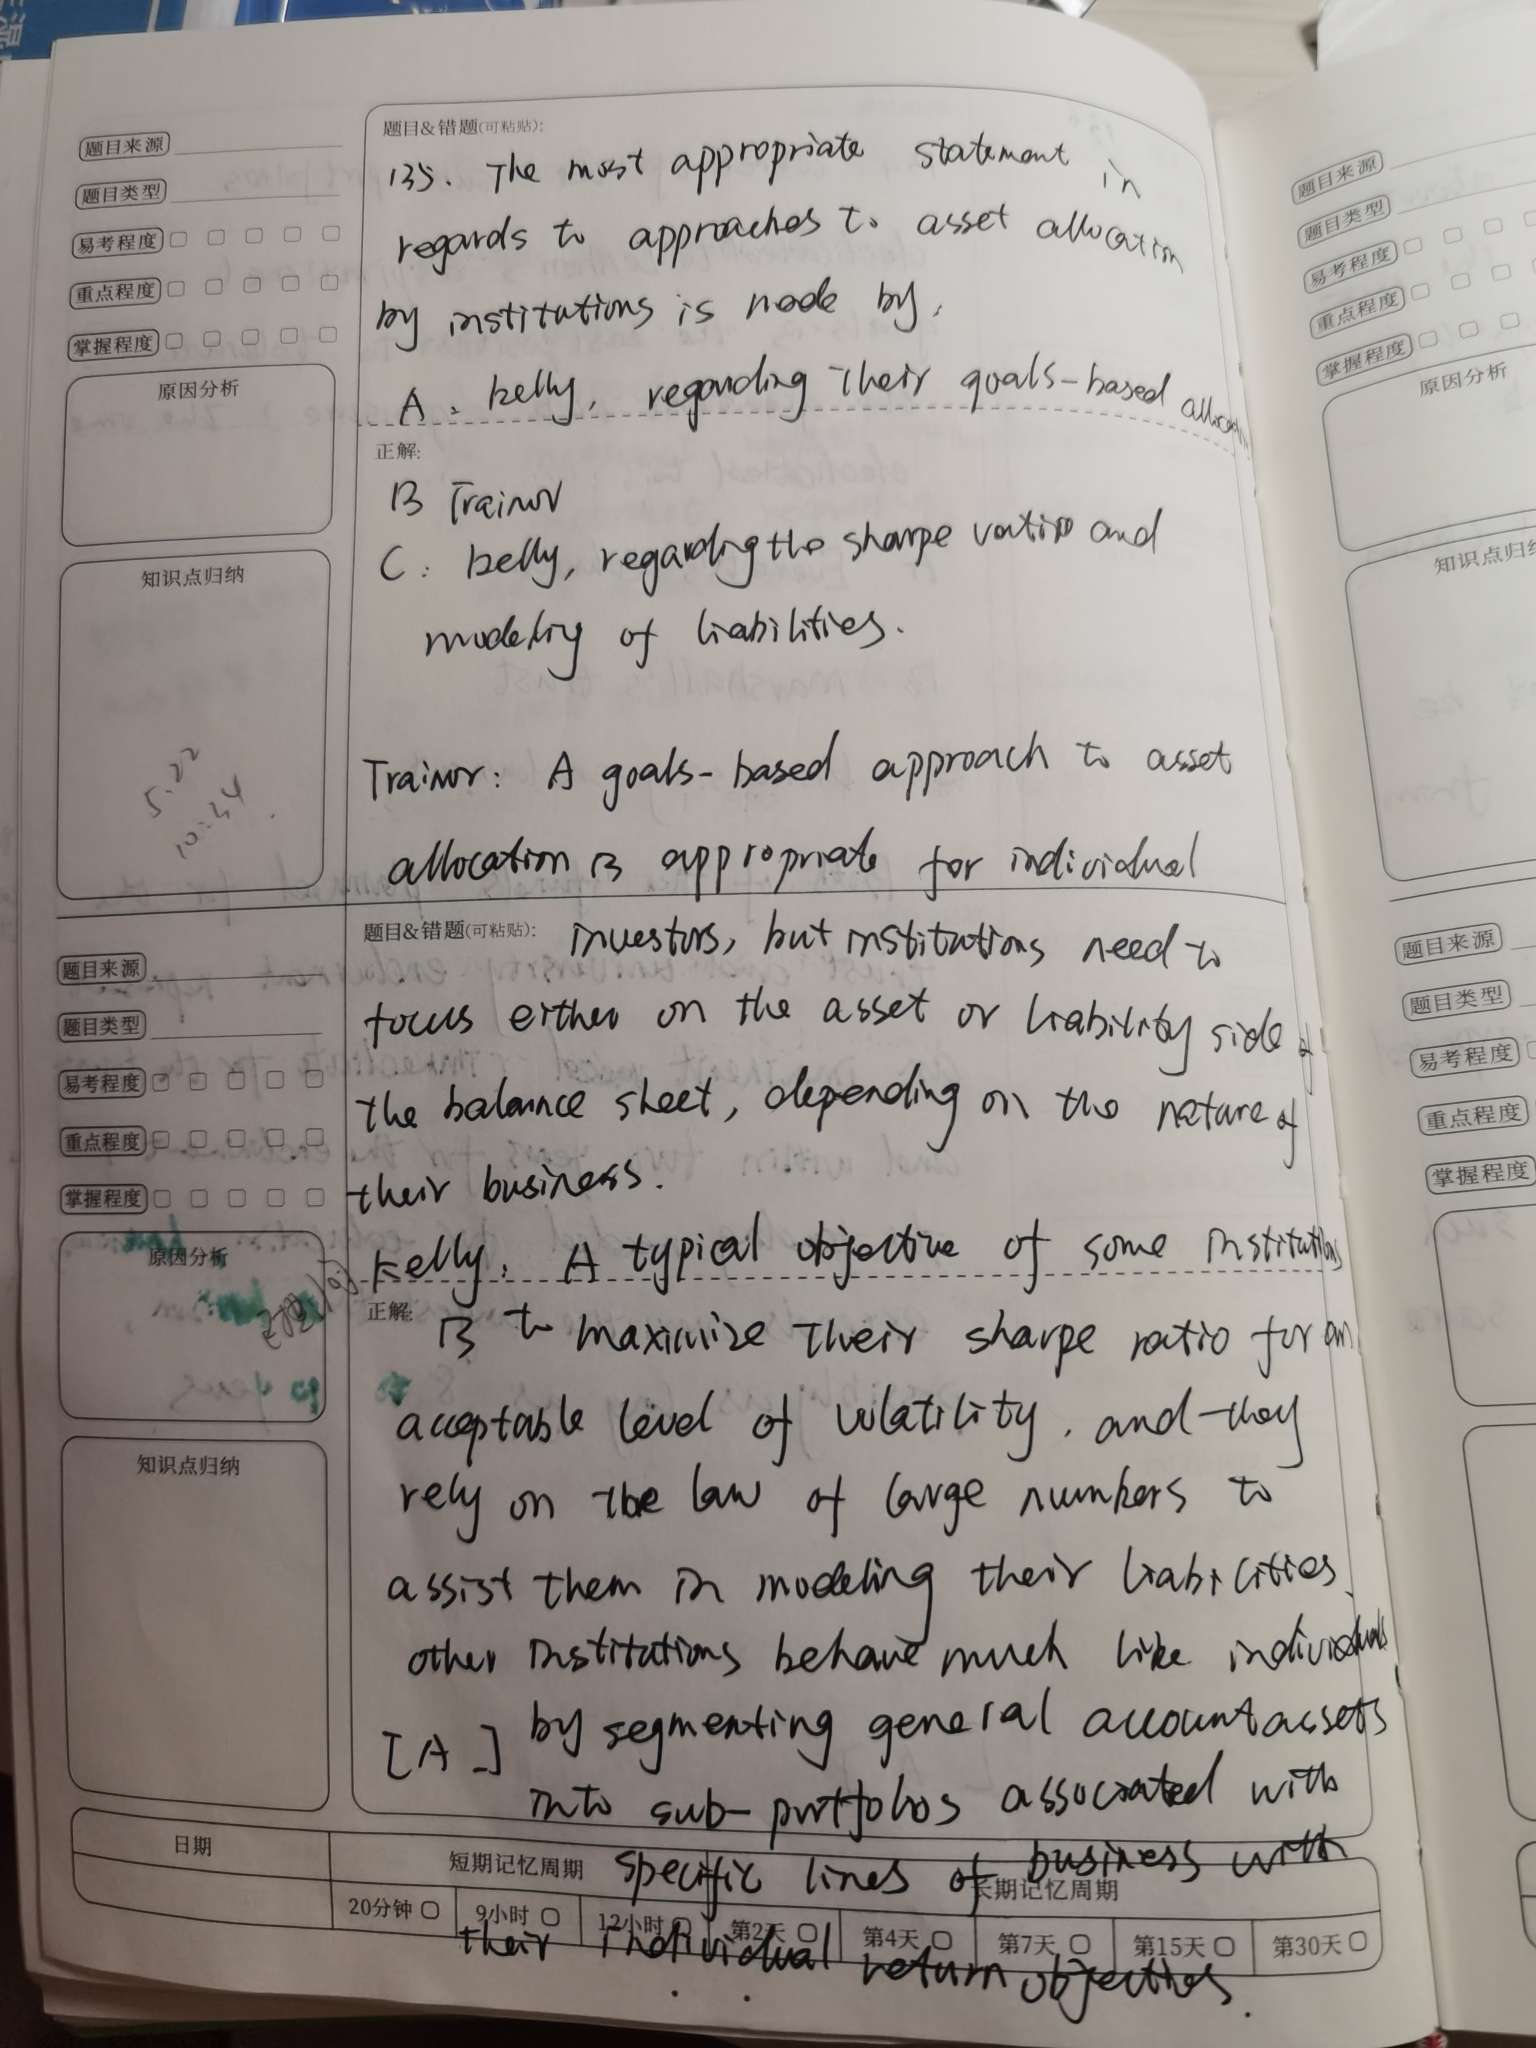 题目来源
题目类型
易考程度
重点程度
掌握程度
原因分析
知识点归纳
5.22
10:34
题目&错题(可粘贴):
135. The most appropriate statement in
regards to approaches to asset allocation
by institutions is made by,
A. kelly, regarding their goals-based allocation
正解:
B Trainor
C. kelly, regarding the sharpe ratios and
modeling of liabilities.
Trainor: A goals-based approach to asset
allocation is appropriate for individual
题目来源
题目类型
易考程度
重点程度
掌握程度
原因分析
知识点归纳
题目&错题(可粘贴):
investors, but institutions need to
focus either on the asset or liability side of
the balance sheet, depending on the nature of
their business.
kelly: A typical objective of some institutions
正解:
is to maximize their sharpe ratio for an
acceptable level of volatility, and they
rely on the law of large numbers to
assist them in modeling their liabilities.
other institutions behave much like individuals
[A] by segmenting general account assets
into sub-portfolios associated with
specific lines of business with
their individual return objectives.
日期
短期记忆周期
长期记忆周期
20分钟
9小时
12小时
第2天
第4天
第7天
第15天
第30天
题目来源
题目类型
易考程度
重点程度
掌握程度
原因分析
知识点归纳
题目来源
题目类型
易考程度
重点程度
掌握程度